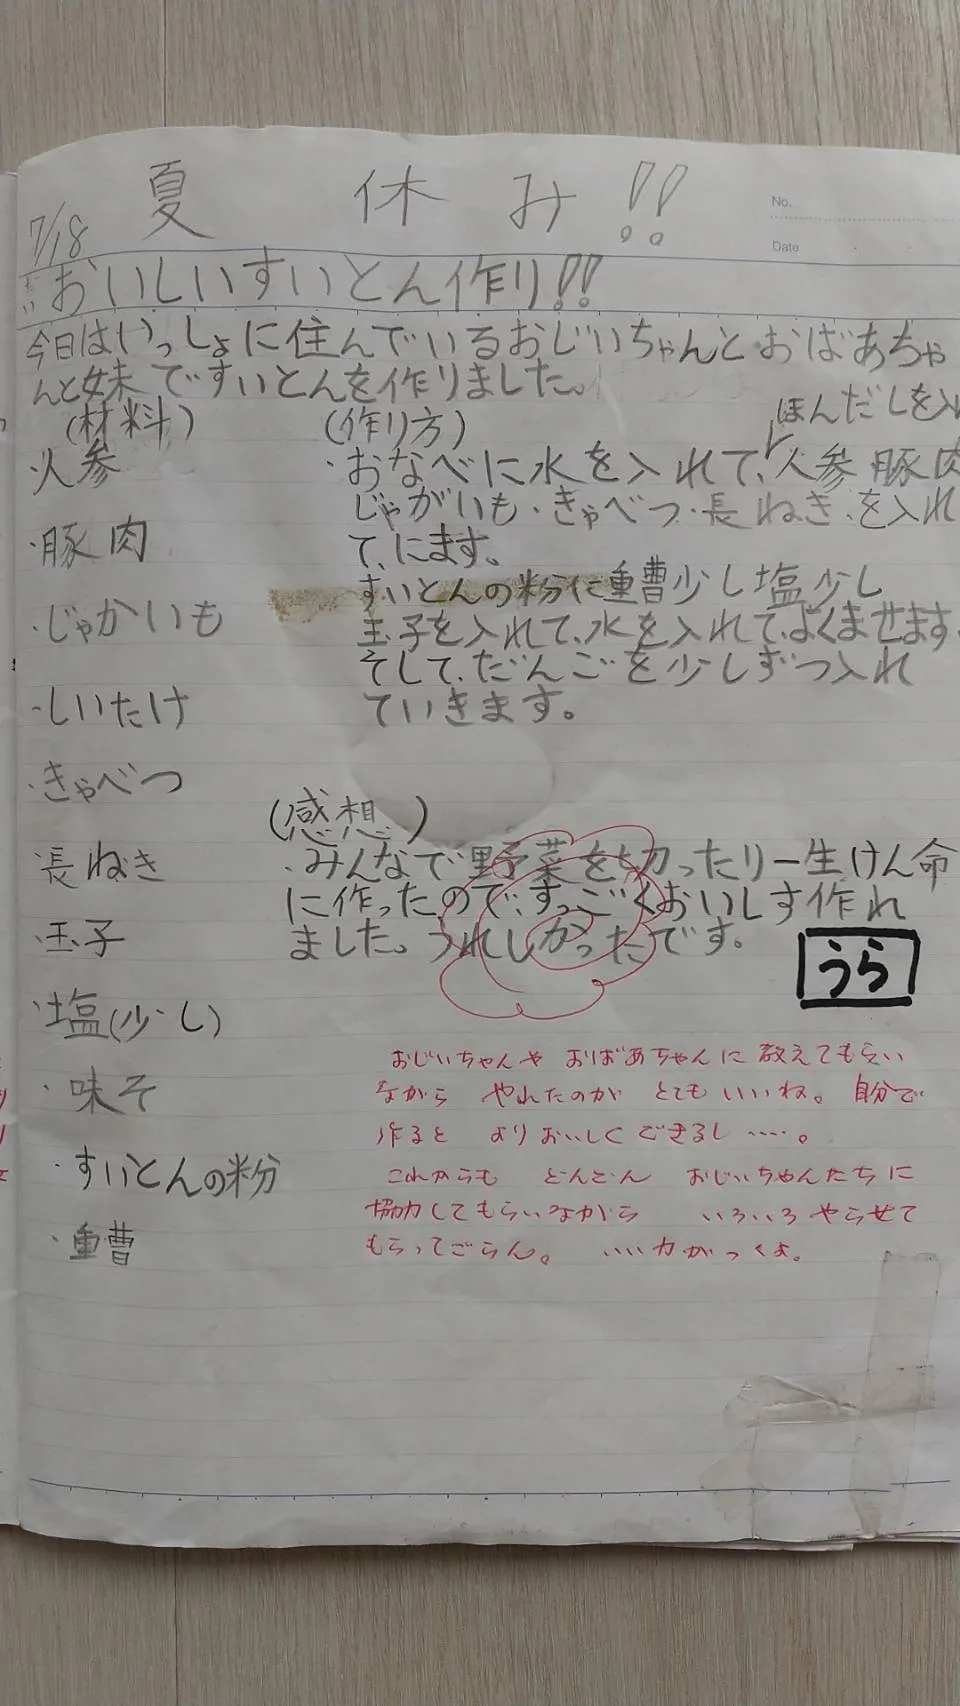 夏 休 み!!
7/18
No.
Date
おいしいすいとん作り!!
今日はいっしょに住んでいるおじいちゃんとおばあちゃ
んと妹ですいとんを作りました。
(材料)
・人参
・豚肉
・じゃかいも
・しいたけ
・きゃべつ
長ねぎ
・玉子
・塩(少し)
・味そ
・すいとんの粉
・重曹
(作り方)
ほんだしを入
・おなべに水を入れて、人参 豚肉
じゃがいも・きゃべつ・長ねぎ、を入れ
て、にます。
すいとんの粉に重曹少し塩少し
玉子を入れて、水を入れて、よくませます
そして、だんごを少しずつ入れ
ていきます。
(感想)
・みんなで野菜を切ったり一生けん命
に作ったので、すっごくおいしす作れ
ました。うれしかったです。
うら
おじいちゃんや おばあちゃんに 教えてもらい
ながら やれたのが とてもいいね。 自分で
作ると よりおいしくできるし‥‥。
これからも どんどん おじいちゃんたちに
協力してもらいながら いろいろ やらせて
もらってごらん。 いい力がつくよ。